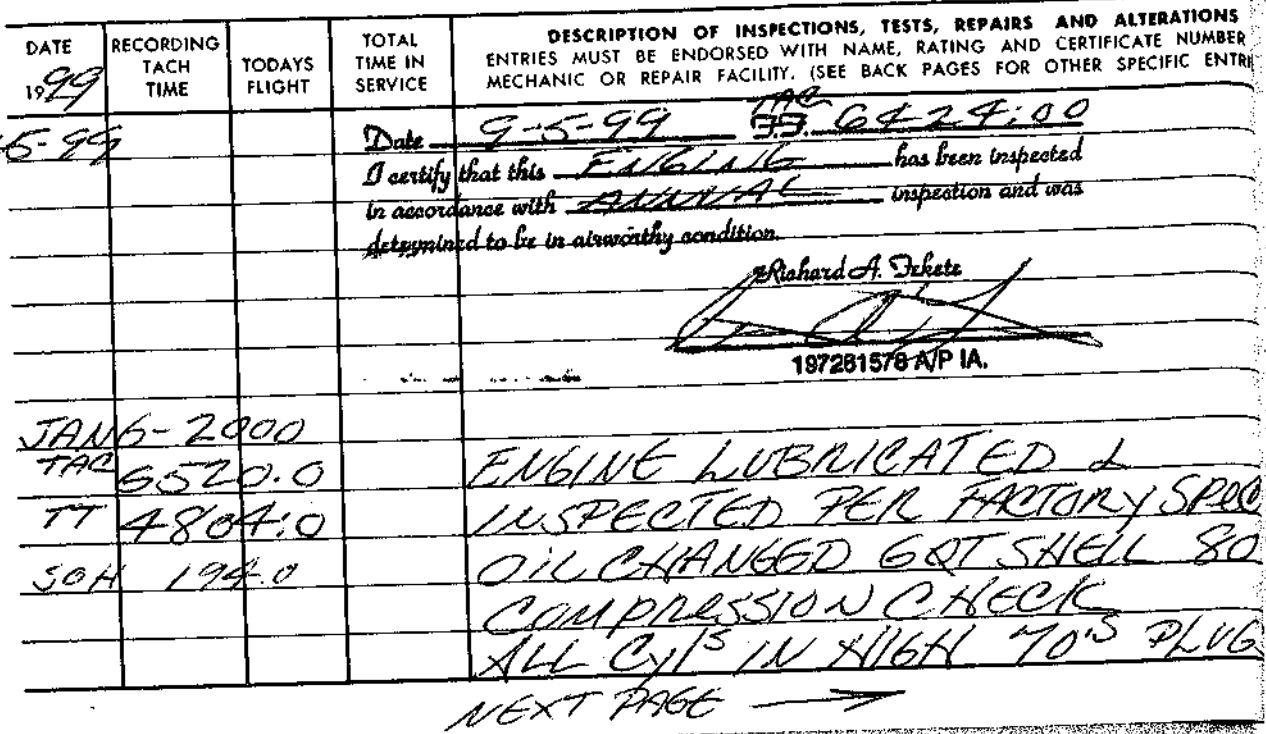 DATE
1999
RECORDING
TACH
TIME
TODAYS
FLIGHT
TOTAL
TIME IN
SERVICE
DESCRIPTION OF INSPECTIONS, TESTS, REPAIRS AND ALTERATIONS
ENTRIES MUST BE ENDORSED WITH NAME, RATING AND CERTIFICATE NUMBER
MECHANIC OR REPAIR FACILITY. (SEE BACK PAGES FOR OTHER SPECIFIC ENTRI
-5-99
Date 9-5-99 TAC 6424:00
I certify that this ENGINE has been inspected
in accordance with ANNUAL inspection and was
determined to be in airworthy condition.
Richard A. Fekete
197281578 A/P IA.
JAN 6-2000
TAC 6520.0 ENGINE LUBRICATED &
TT 4804:0 INSPECTED PER FACTORY SPEC
SOH 194.0 OIL CHANGED 6QT SHELL 80
COMPRESSION CHECK
ALL CYLS IN HIGH 70'S PLUG
NEXT PAGE →